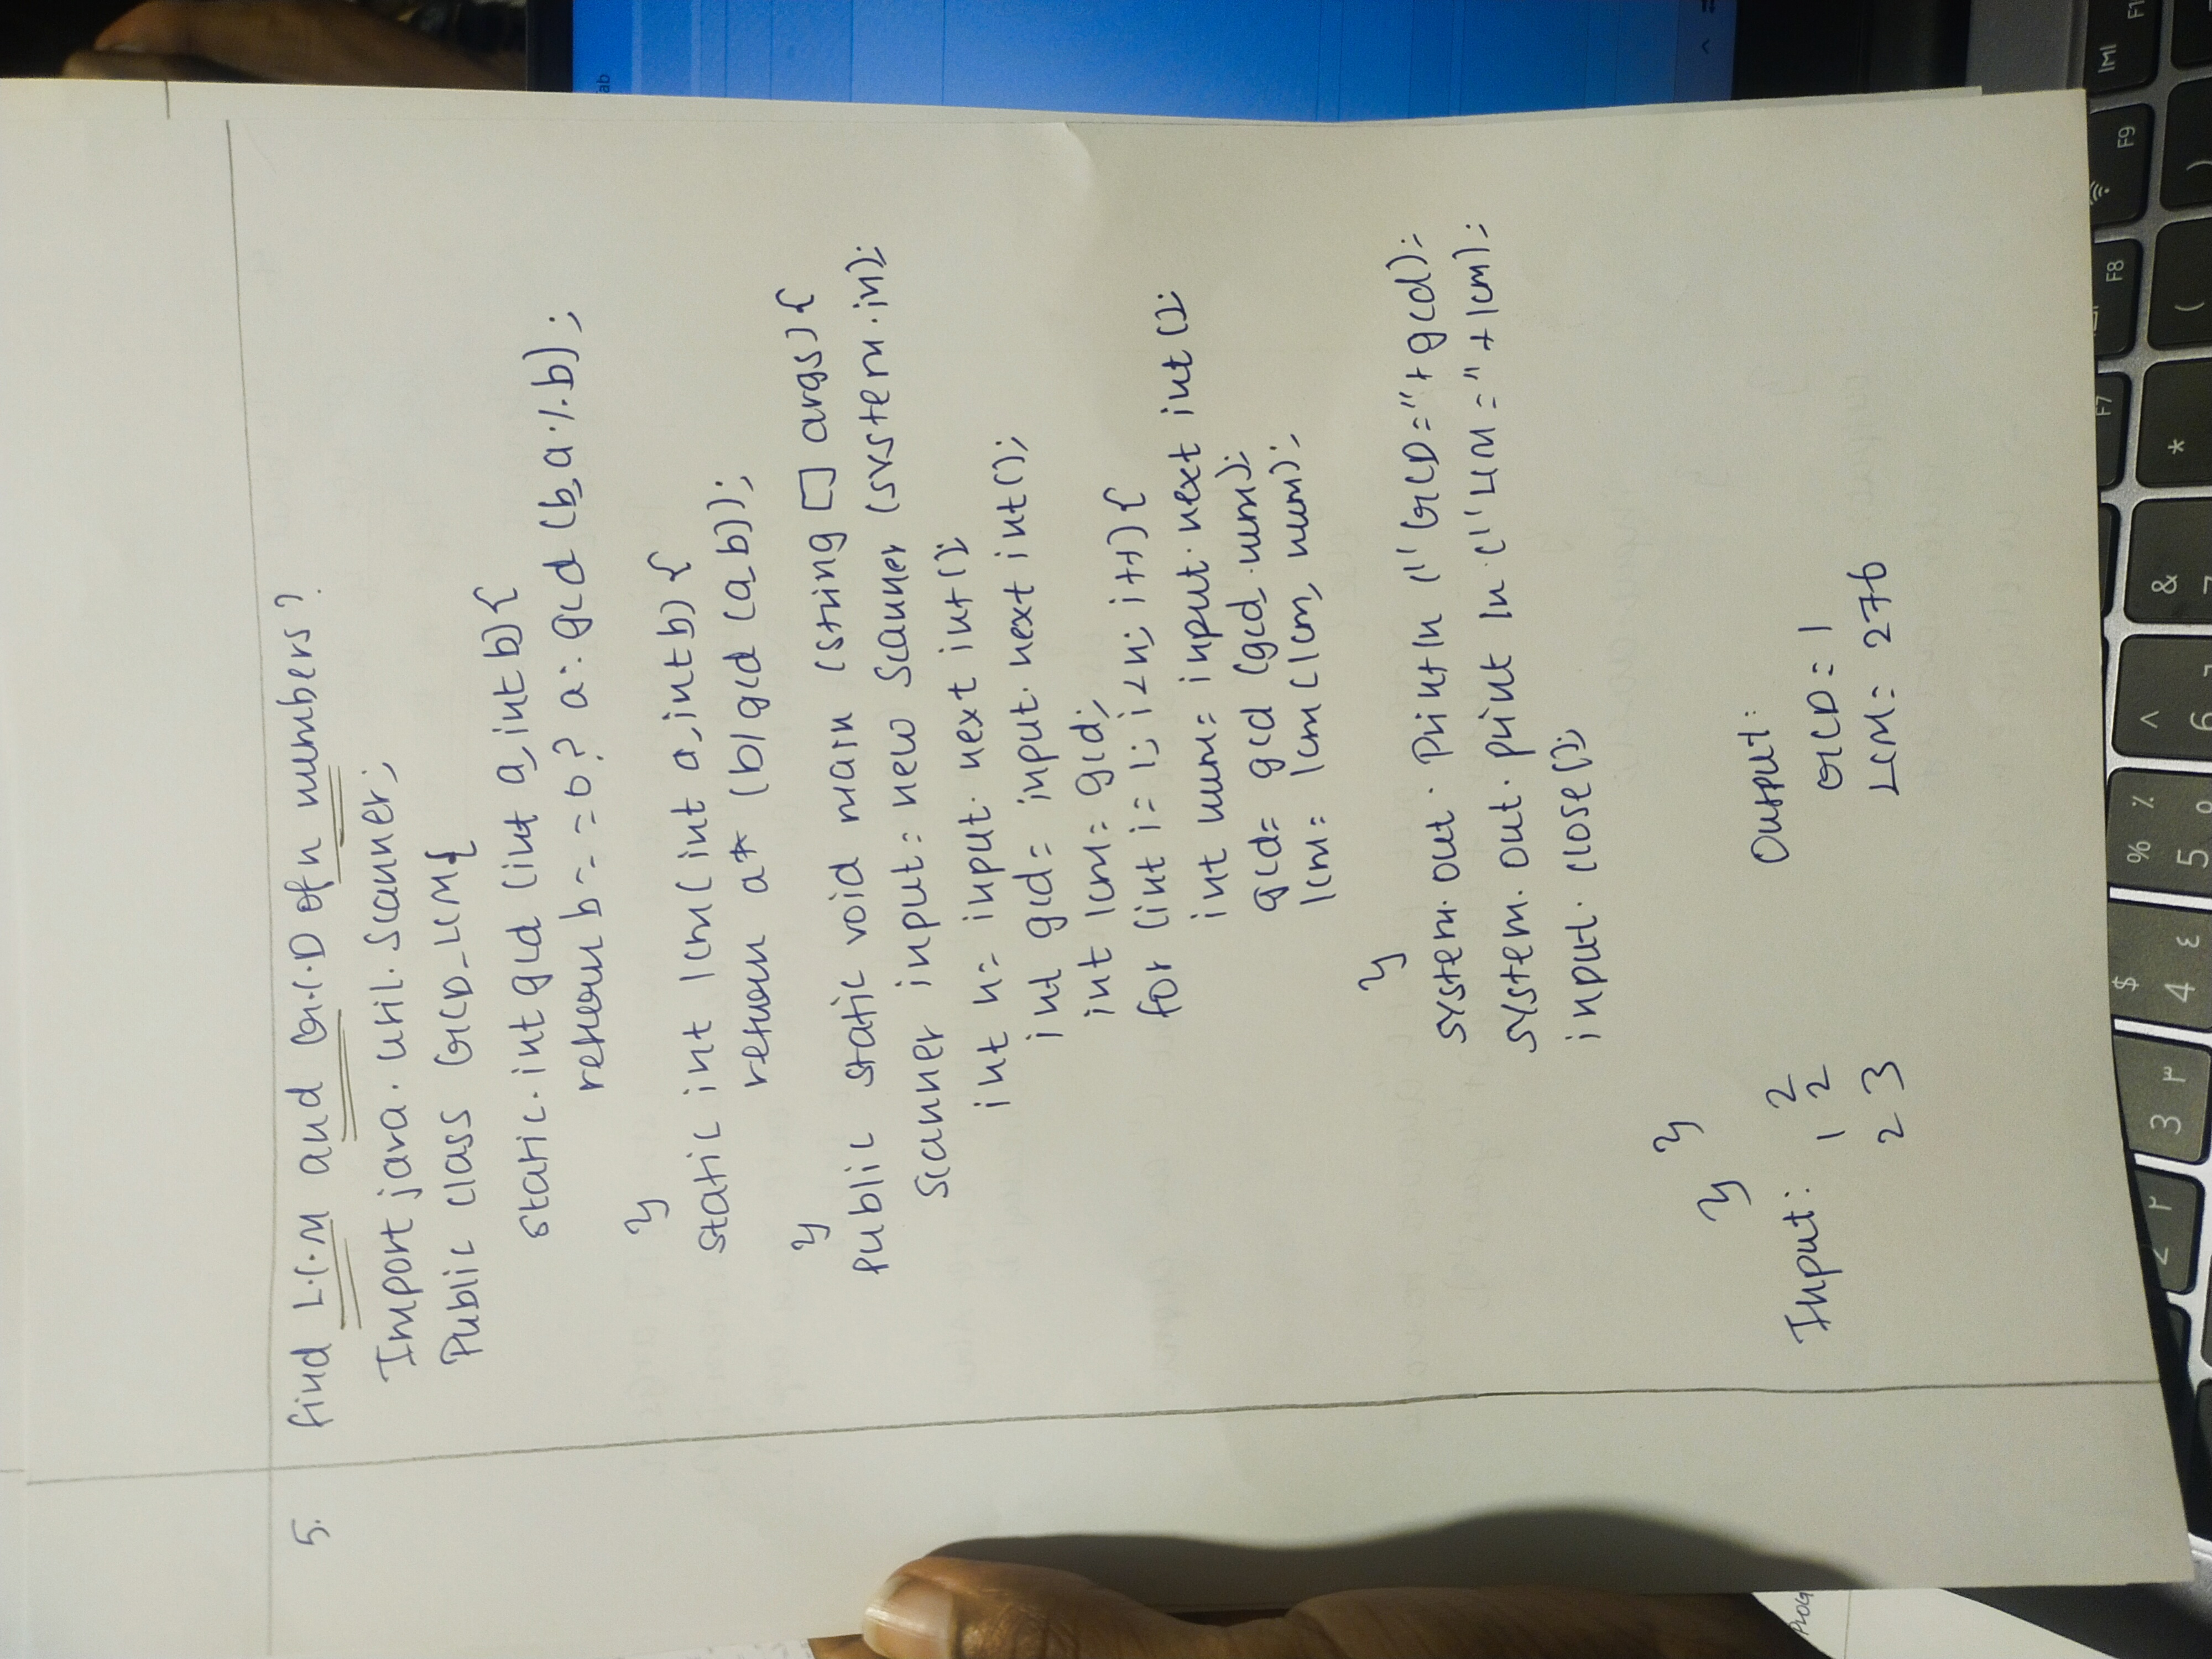 5. find L.C.M and G.C.D of n numbers?
Import java.util.Scanner;
Public class GCD_LCM{
static.int gcd (int a, int b){
return b==0? a: gcd (b, a%b);
}
static int lcm(int a, int b){
return a* (b/gcd (a, b));
}
Public static void main (string [] args){
Scanner input= new Scanner (system.in);
int n= input.next int();
int gcd= input.next int();
int lcm= gcd;
for (int i= 1; i<n; i++){
int num= input.next int();
gcd= gcd (gcd, num);
lcm= lcm(lcm, num);
}
system.out.Println ("GCD="+gcd);
system.out.print ln ("LCM="+lcm);
input.close();
}
}
Input: 2
1 2
2 3
Output:
GCD= 1
LCM= 276
ab
PROG
F7
F8
F9
F1
2 ٢
3 ٣
$ 4 ٤
% ٪ 5 ٥
^ 6
& 7
*
(
)